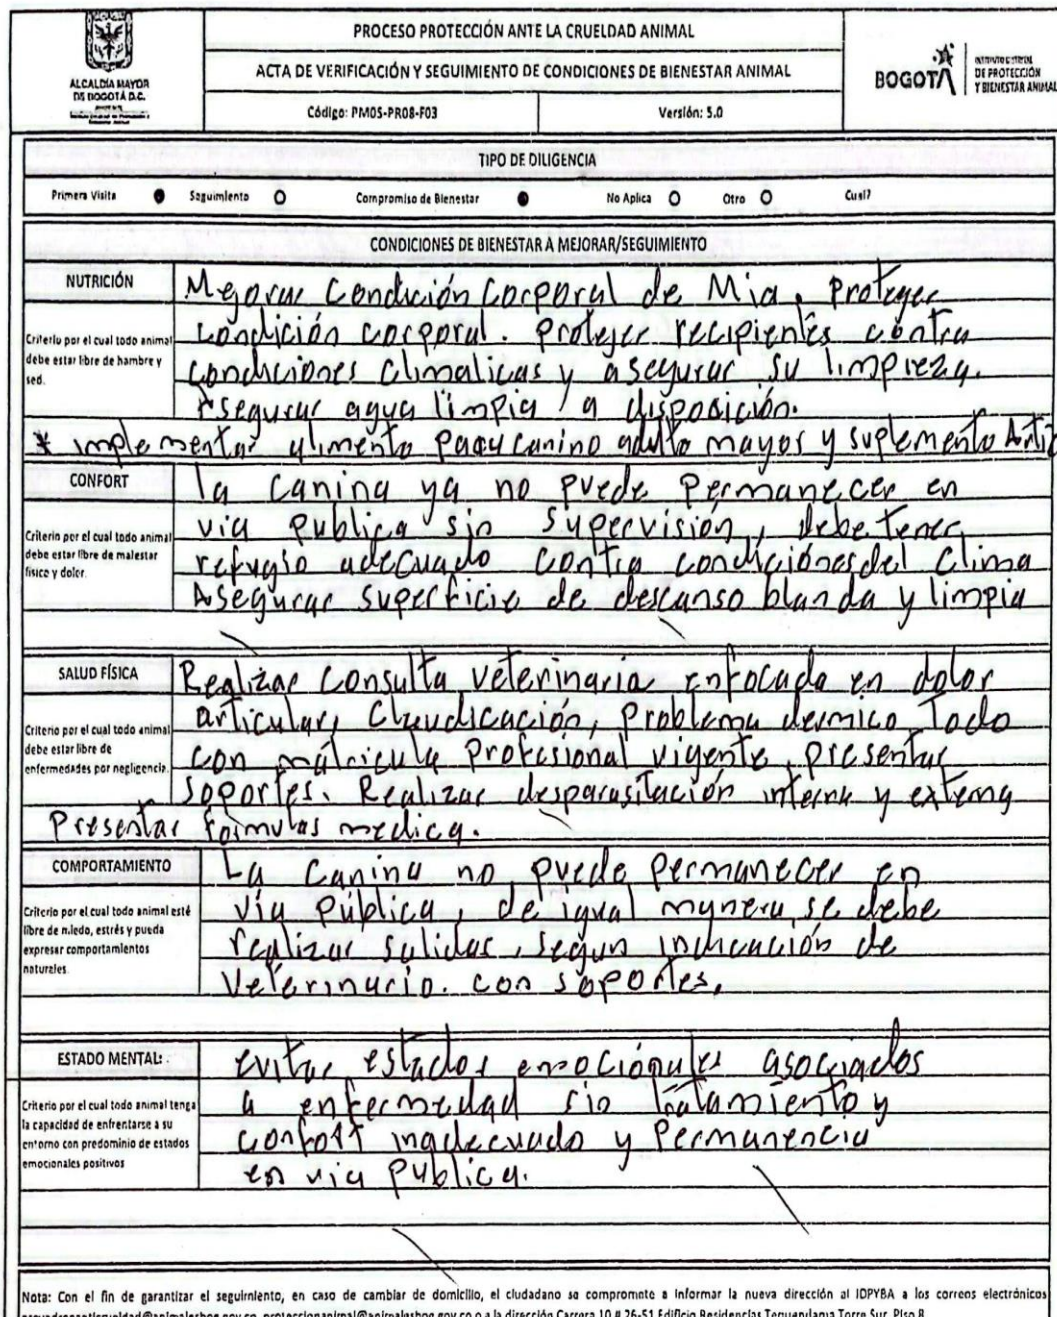 PROCESO PROTECCIÓN ANTE LA CRUELDAD ANIMAL
ACTA DE VERIFICACIÓN Y SEGUIMIENTO DE CONDICIONES DE BIENESTAR ANIMAL
Código: PM05-PR08-F03
Versión: 5.0
ALCALDÍA MAYOR
DE BOGOTÁ D.C.
BOGOTÁ
DE PROTECCIÓN
Y BIENESTAR ANIMAL
TIPO DE DILIGENCIA
Primera Visita
Seguimiento
Compromiso de Bienestar
No Aplica
Otro
Cual?
CONDICIONES DE BIENESTAR A MEJORAR/SEGUIMIENTO
NUTRICIÓN
Criterio por el cual todo animal
debe estar libre de hambre y
sed.
Mejorar Condición Corporal de Mia. proteger
condición corporal. proteger recipientes contra
condiciones climaticas y asegurar su limpieza.
Asegurar agua limpia a disposición.
* implementar alimento para canino adulto mayor y suplemento
CONFORT
Criterio por el cual todo animal
debe estar libre de malestar
físico y dolor.
la canina ya no puede permanecer en
via publica sin supervisión, debe tener
refugio adecuado contra condiciónes del clima
Asegurar superficie de descanso blanda y limpia
SALUD FÍSICA
Criterio por el cual todo animal
debe estar libre de
enfermedades por negligencia.
Realizar consulta veterinaria enfocada en dolor
articular, Claudicación, problema dermico Todo
con mátricula profesional vigente, presentar
soportes. Realizar desparasitación interna y externa
Presentar formulas medica.
COMPORTAMIENTO
Criterio por el cual todo animal esté
libre de miedo, estrés y pueda
expresar comportamientos
naturales.
La canina no puede permanecer en
vía pública, de igual manera se debe
realizar salidas, segun indicación de
veterinario. con soportes.
ESTADO MENTAL:
Criterio por el cual todo animal tenga
la capacidad de enfrentarse a su
entorno con predominio de estados
emocionales positivos
evitar estados emociónales asociados
a enfermedad sin tratamiento y
confort inadecuado y permanencia
en via publica.
Nota: Con el fin de garantizar el seguimiento, en caso de cambiar de domicilio, el ciudadano se compromete a informar la nueva dirección al IDPYBA a los correos electrónicos
proteccionanimal@animalesbog.gov.co o a la dirección Carrera 10 # 26-51 Edificio Residencias Tequendama Torre Sur, Piso 8